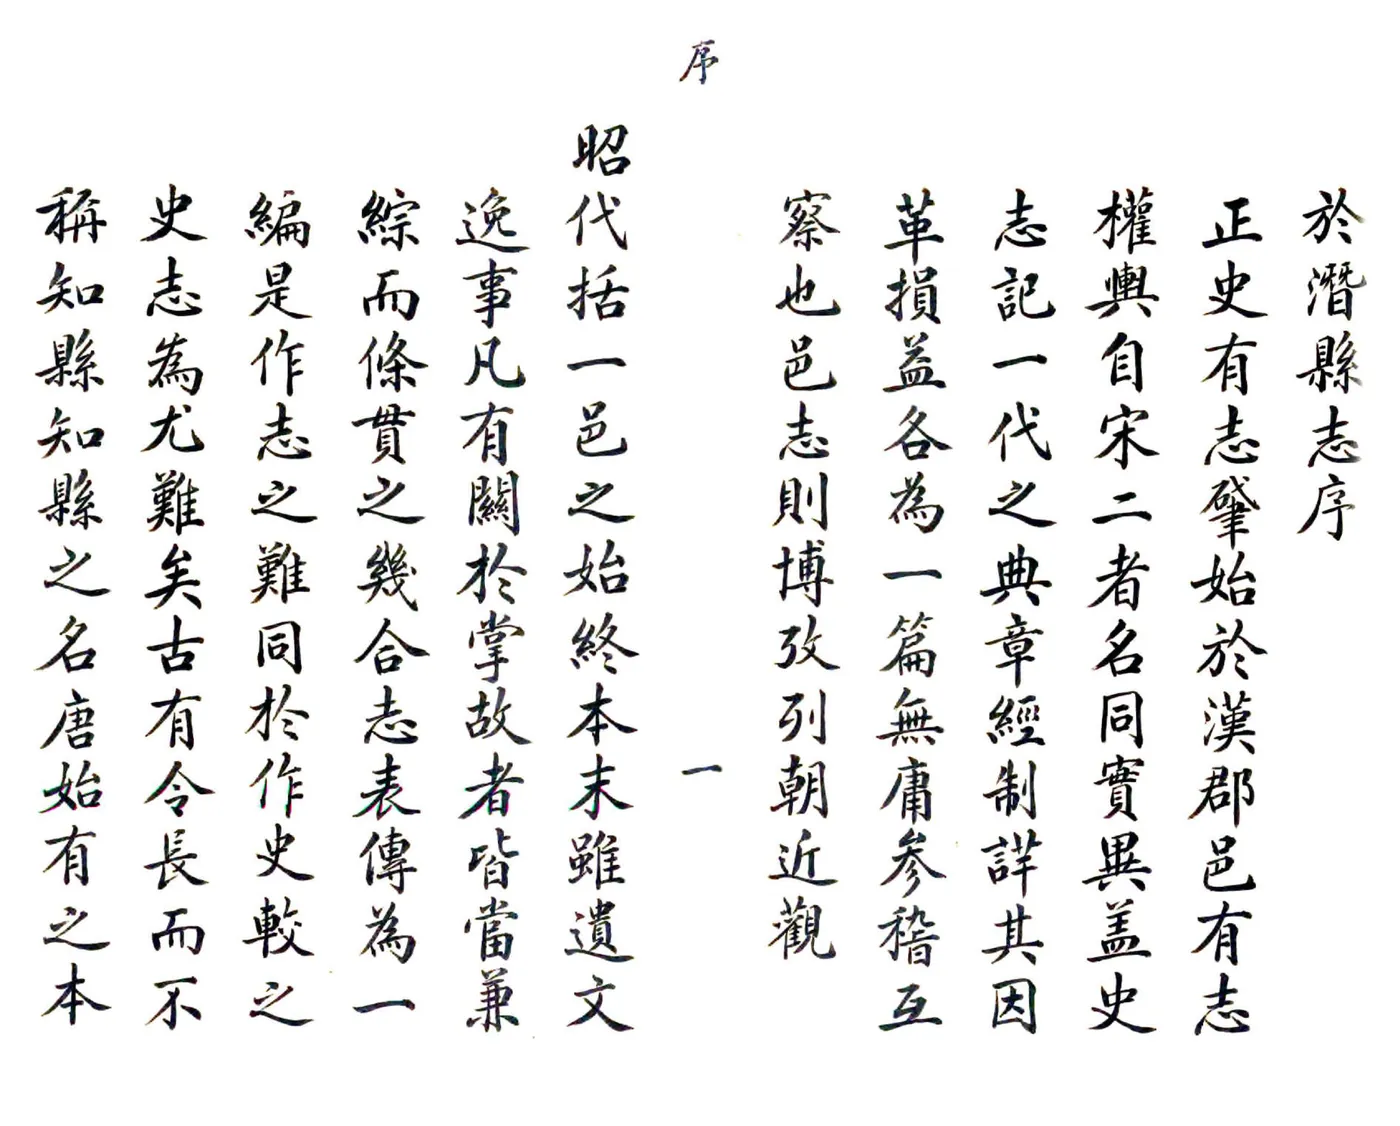 於潛縣志序
正史有志肇始於漢郡邑有志
權輿自宋二者名同實異盖史
志記一代之典章經制詳其因
革損益各為一篇無庸參稽互
察也邑志則博攷列朝近觀
序
一
昭代括一邑之始終本末雖遺文
逸事凡有關於掌故者皆當兼
綜而條貫之幾合志表傳為一
編是作志之難同於作史較之
史志為尤難矣古有令長而不
稱知縣知縣之名唐始有之本